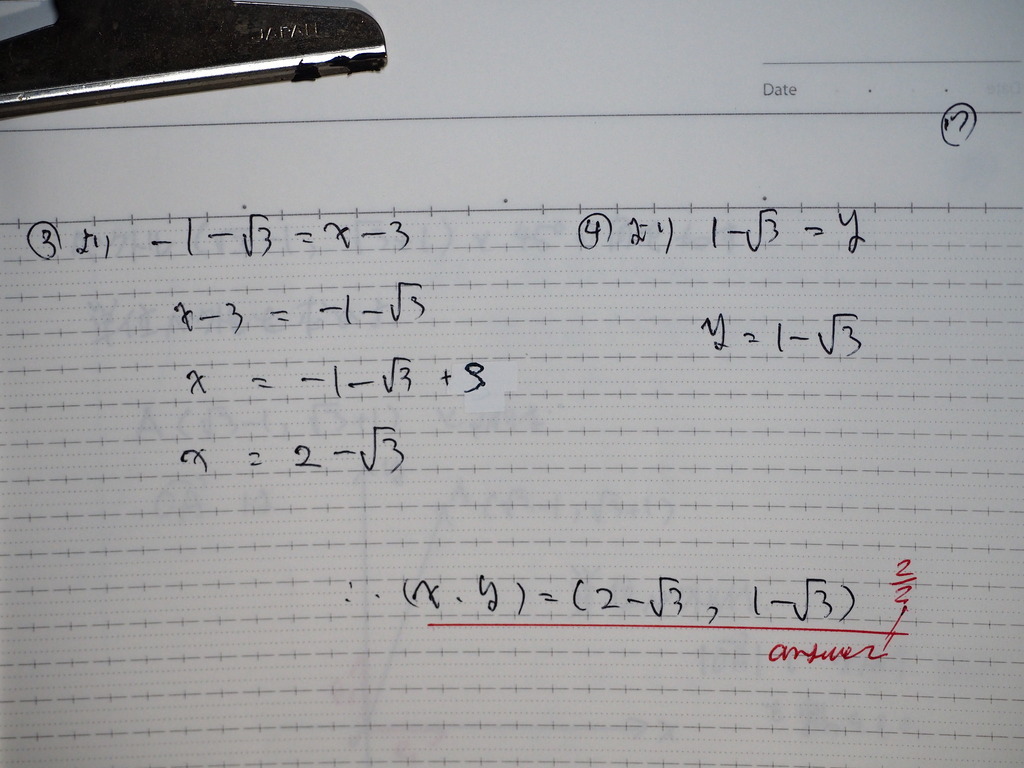 JAPAN
Date
③より, -1-√3=x-3
x-3 = -1-√3
x = -1-√3 +3
x = 2-√3
④より) 1-√3 = y
y = 1-√3
∴ (x. y) = (2-√3, 1-√3)
2/2
answer